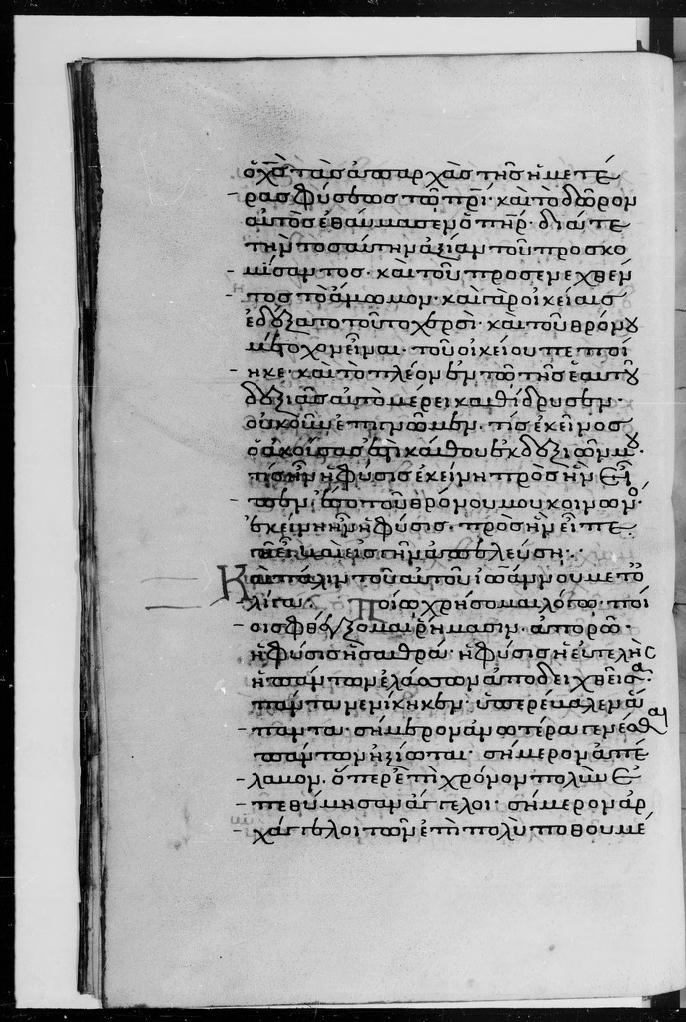 ὁ χ̅ς̅ τὰς ἀπαρχὰς τῆς ἡμετέ
ρας φύσεως τῶ π̅ρ̅ι̅· καὶ τὸ δῶρον
αὐτὸς ἐθαύμασεν ὁ π̅η̅ρ̅· διά τε
τὴν τοσαύτην ἀξίαν τοῦ προσκο
μίσαντος· καὶ τοῦ προσενεχθέν
τος τὸ ἄμωμον· καὶ γὰρ οἰκείαις
ἐδέξατο τοῦτο χερσὶ· καὶ τοῦ θρόνου
μέτοχον εἶναι τοῦ οἰκείου πεποί
ηκε· καὶ τὸ πλέον ἐν τῶ τῆς ἑαυτοῦ
δεξιᾶς αὐτὸ μέρει καθίδρυσεν·
οὐκοῦν ἐπιγνῶμεν· τίς ἐκεῖνος
ὁ ἀκούσας ὅτι κάθου ἐκ δεξιῶν μου·
τίς ἦν ἡ φύσις ἐκείνη πρὸς ἣν εἶ
πεν· ἔσο τοῦ θρόνου μου κοινωνός·
ἐκείνη ἦν ἡ φύσις· πρὸς ἣν εἶπε
γῆ εἶ καὶ εἰς γῆν ἀπελεύση:
Καὶ πάλιν τοῦ αὐτοῦ ἰωάννου μετ ὀ
λίγα: Ποίω χρήσομαι λόγω· ποί
οις φθέγξομαι ῥήμασιν· ἀπορῶ·
ἡ φύσις ἡ σαθρὰ· ἡ φύσις ἡ εὐτελὴς
ἡ πάντων ἐλάσσων ἀποδειχθεῖσα·
πάντα νενίκηκεν· ὑπερέβαλεν ἅ
παντα· σήμερον ἀνωτέρα γενέσθαι
πάντων ἠξίωται· σήμερον ἀπέ
λαβον· ὅπερ ἐπὶ χρόνον πολὺν ἐ
πεθύμησαν ἄγγελοι· σήμερον ἀρ
χάγγελοι τῶν ἐπὶ πολὺ ποθουμέ